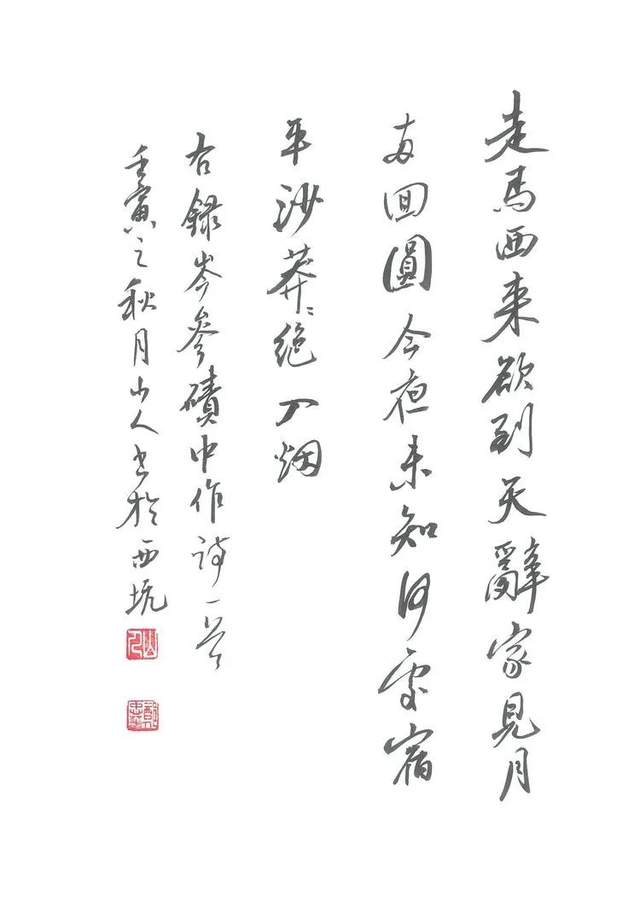 走馬西來欲到天辭家見月
兩回圓今夜未知何處宿
平沙莽〻絕人烟
右錄岑參磧中作詩一首
壬寅之秋月山人書於西坑
山人